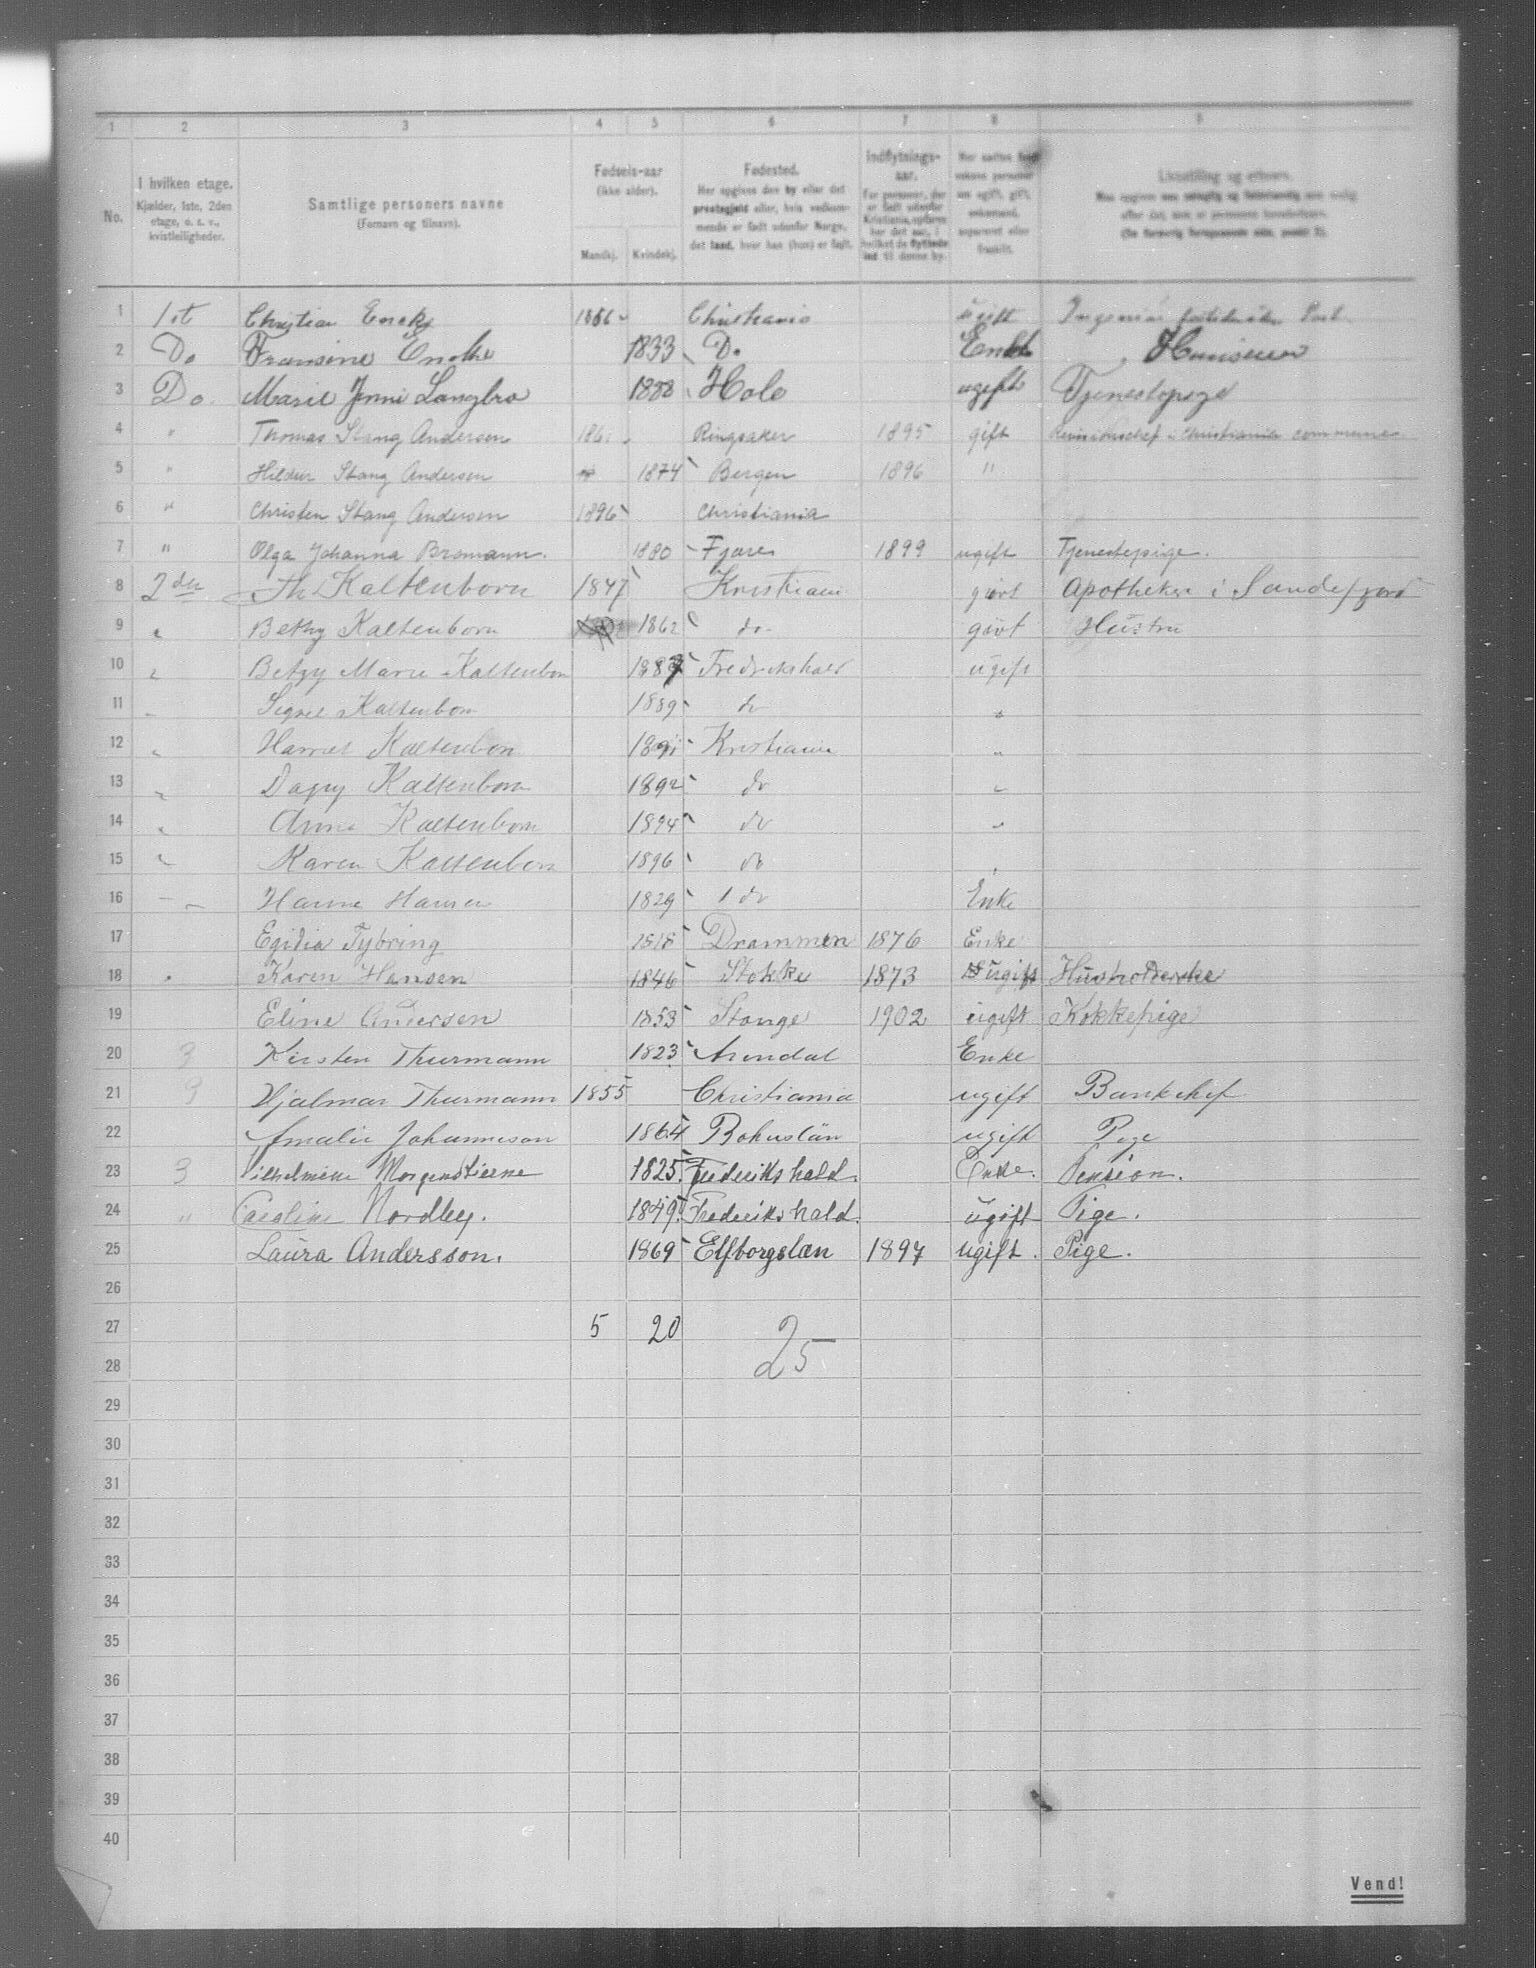 1 2 3 4 5 6 7 8 9
No. I hvilken etage. Kjælder, 1ste, 2den etage, o. s. v., kvistleiligheder. Samtlige personers navne (Fornavn og tilnavn). Fødsels-aar (ikke alder). Mandkj. Kvindekj. Fødested. Her opgives den by eller det prestegjeld eller, hvis vedkommende er født udenfor Norge, det land, hvor han (hun) er født. Indflytnings-aar. For personer, der er født udenfor Kristiania, opføres her det aar, i hvilket de flyttede ind til denne by. Livsstilling og erhverv.
1 1st Christian 1866 Christiania ugift Ingeniør
2 Do Fransine Encke 1833 Do Enke
3 Do Marie Jenni Langbro 1888 Hole ugift Tjenestepige
4 " Thomas Stang Andersen 1861 Ringsaker 1895 gift Revisionschef i Christiania commune
5 " Hildur Stang Andersen 1874 Bergen 1896 "
6 " Christen Stang Andersen 1896 Christiania
7 " Olga Johanna Bromann. 1880 Fjære 1899 ugift Tjenestepige.
8 2den Th Kaltenborn 1847 Kristiania givt Apotheker i Sandefjord
9 " Bethy Kaltenborn 1862 do givt Hustru
10 " Betzy Marie Kaltenborn 1887 Fredrikshald ugift
11 Signe Kaltenborn 1889 do "
12 " Harriet Kaltenborn 1891 Kristiania "
13 " Dagny Kaltenborn 1892 do "
14 " Anna Kaltenborn 1894 do "
15 " Karen Kaltenborn 1896 do "
16 " Hanne Hansen 1829 do Enke
17 Egidia Tybring 1818 Drammen 1876 Enke
18 " Karen Hansen 1846 Stokke 1873 ugift
19 Eline Andersen 1853 Stange 1902 ugift Kokkepige
20 3 Kirsten Thurmann 1823 Arendal Enke
21 3 Hjalmar Thurmann 1855 Christiania ugift Bankchef
22 Amalie Johanneson 1864 Bohuslän ugift Pige
23 3 Vilhelmine Morgenstierne 1825 Frederikshald. Enke. Pension.
24 " Caroline Nordbey. 1849 Frederikshald. ugift Pige.
25 Laura Andersson. 1869 Elfborgslan 1897 ugift. Pige.
26
27 5 20
25
28
29
30
31
32
33
34
35
36
37
38
39
40
Vend!